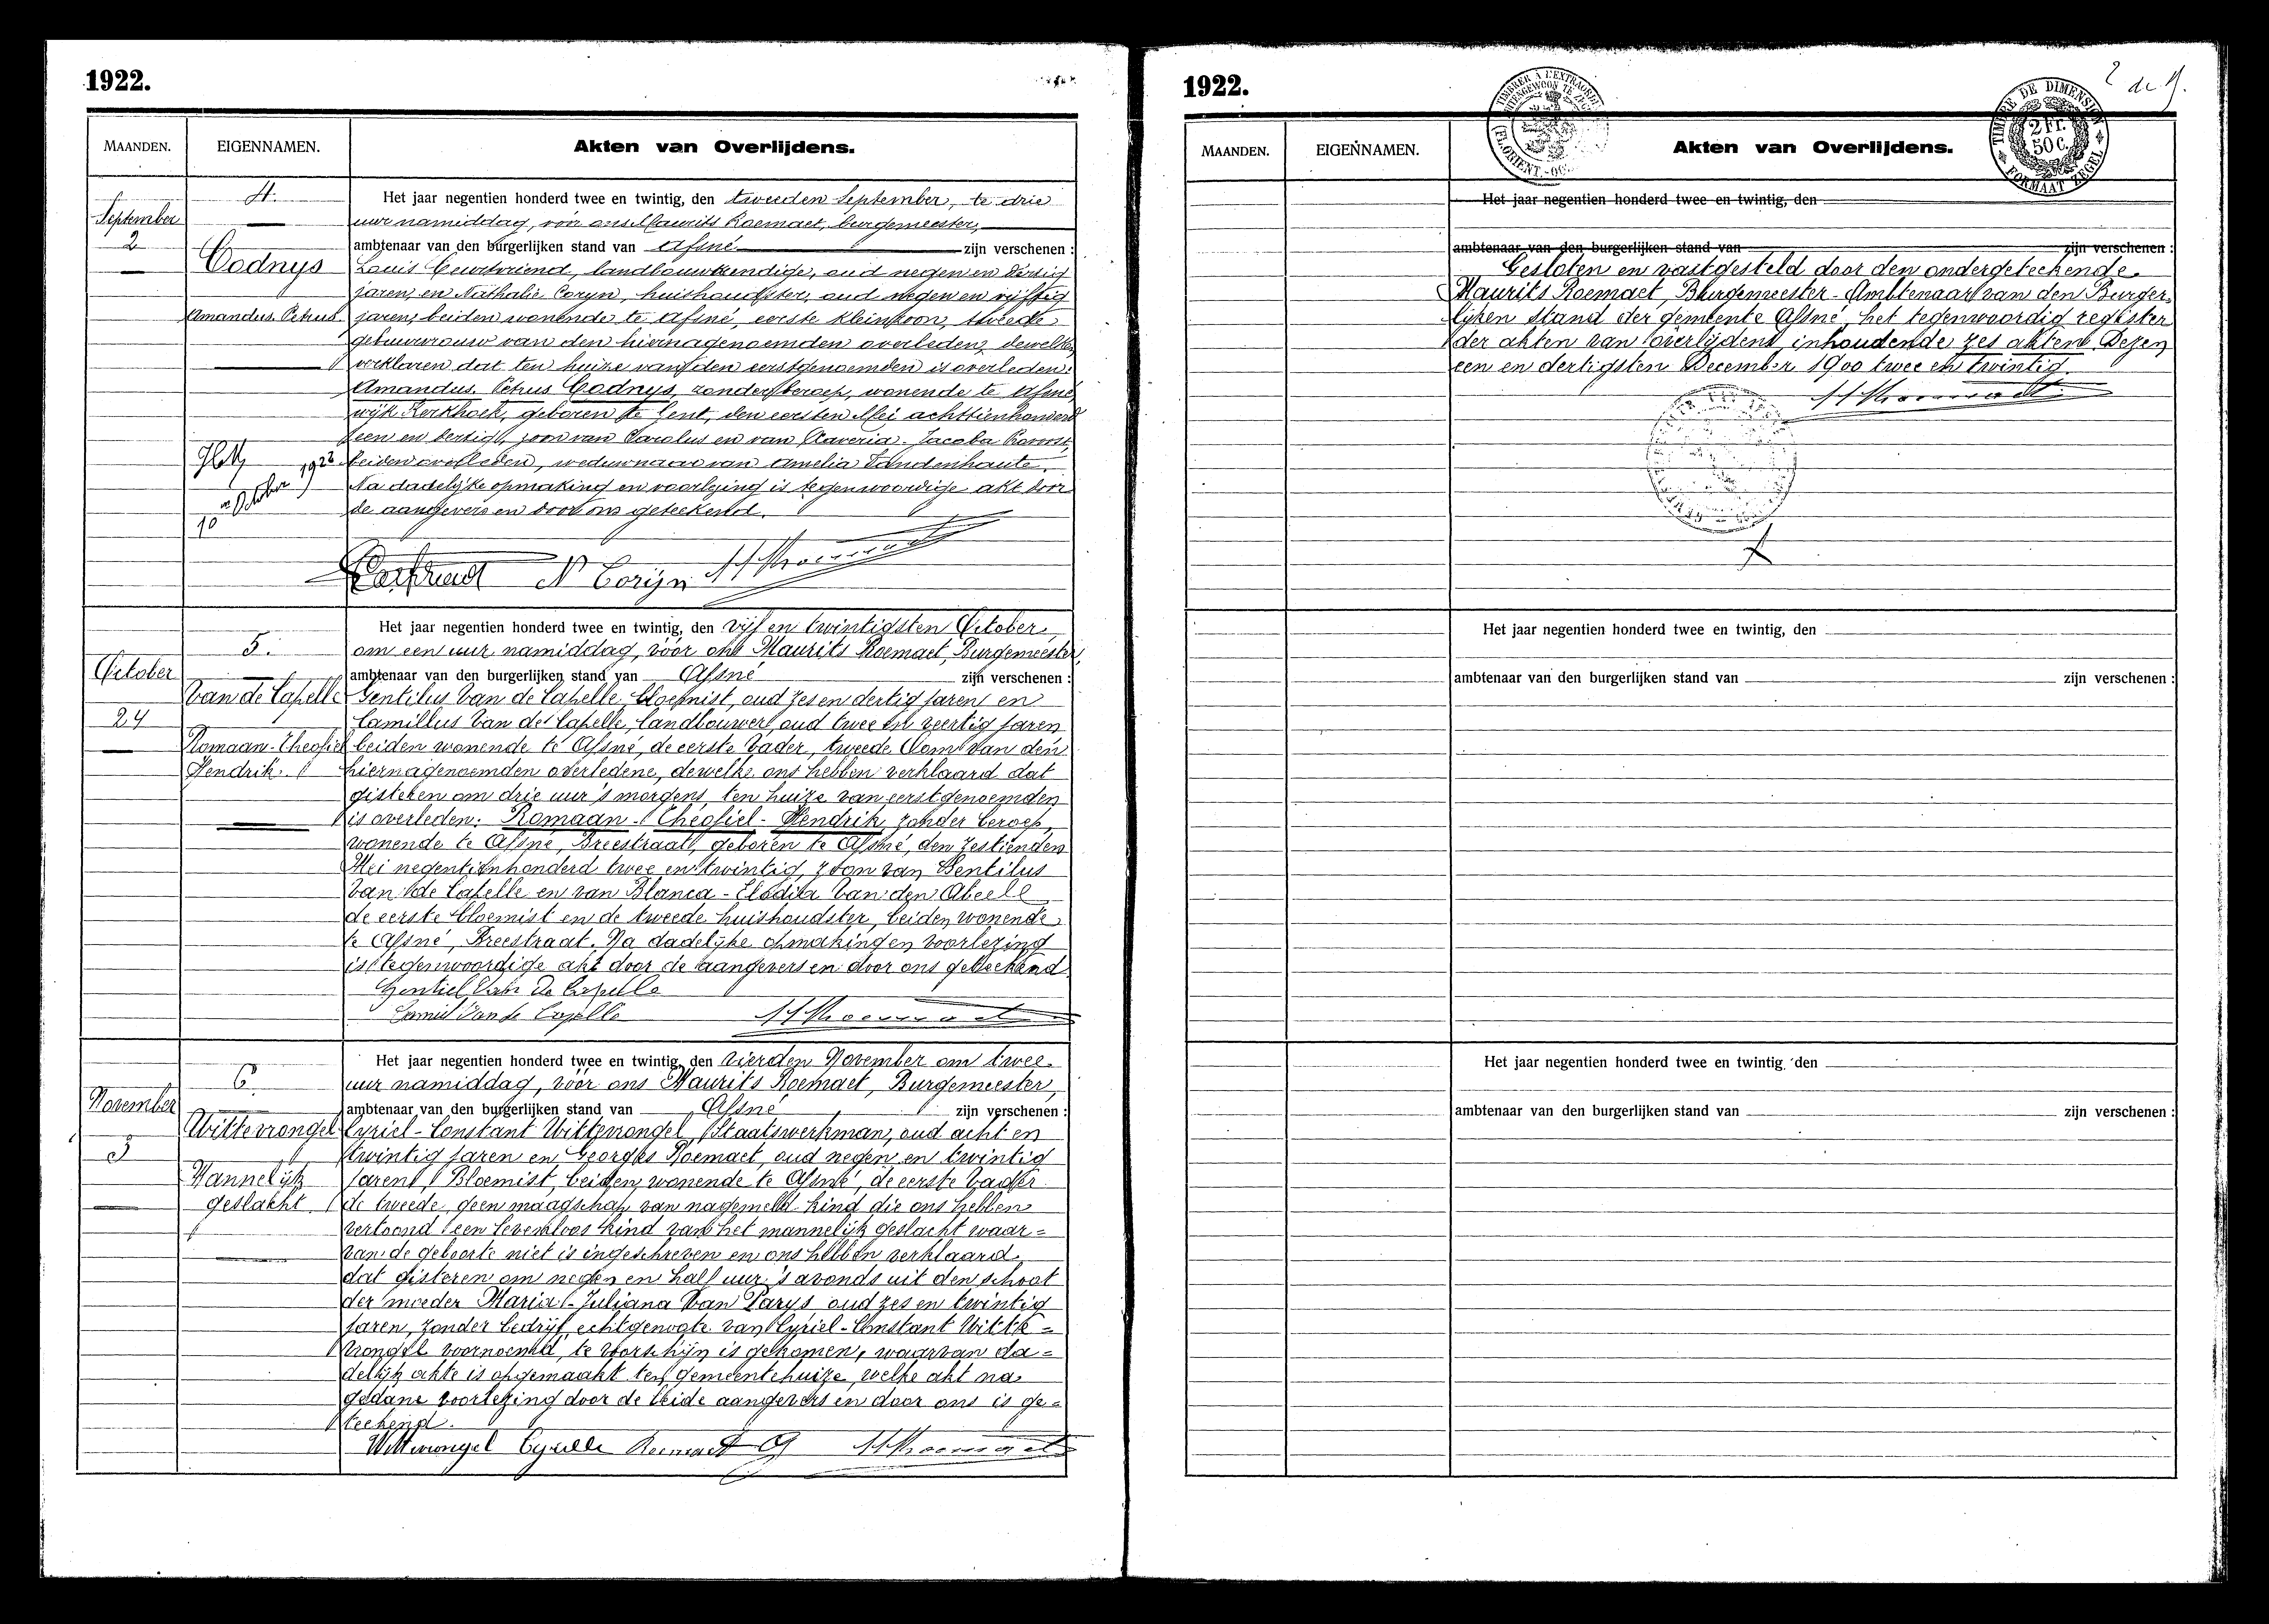 1922.
MAANDEN.
EIGENNAMEN.
Akten van Overlijdens.
September
2
4.
Codnys
Amandus Petrus
10 October 1922
Het jaar negentien honderd twee en twintig, den tweeden September, te drie
uur namiddag, vóór ons Maurits Roemaet, burgemeester,
ambtenaar van den burgerlijken stand van Afsné zijn verschenen :
Louis landbouwkundige, oud negen en dertig
jaren, en Nathalie Coryn, huishoudster, oud negen en vijftig
jaren, beiden wonende te Afsné, eerste kleinzoon, tweede
gebuurvrouw van den hiernagenoemden overleden, dewelke
verklaren dat ten huize van den eerstgenoemden is overleden:
Amandus Petrus Codnys, zonder beroep, wonende te Afsné,
wijk Kerkhoek, geboren te Gent, den eersten Mei achttienhonderd
een en dertig, zoon van Carolus en van Xaveria Jacoba
beiden overleden, weduwnaar van Amelia Vandenhaute.
Na dadelijke opmaking en voorlezing is tegenwoordige akt door
de aangevers en door ons geteekend.
N Corijn M Roemaet
October
24
5.
Van de Capelle
Romaan-Theofiel
Hendrik
Het jaar negentien honderd twee en twintig, den vijf en twintigsten October,
om een uur namiddag, vóór ons Maurits Roemaet, Burgemeester,
ambtenaar van den burgerlijken stand van Afsné zijn verschenen :
Gentilus Van de Capelle, bloemist, oud zes en dertig jaren en
Camillus Van de Capelle, landbouwer, oud twee en veertig jaren,
beiden wonende te Afsné, de eerste Vader, tweede Oom van den
hiernagenoemden overledene, dewelke ons hebben verklaard dat
gisteren om drie uur 's morgens, ten huize van eerstgenoemden
is overleden: Romaan-Theofiel-Hendrik, zonder beroep,
wonende te Afsné, Breestraat, geboren te Afsné, den zestienden
Mei negentienhonderd twee en twintig, zoon van Gentilus
Van de Capelle en van Blanca-Elodia Van den Abeele
de eerste bloemist en de tweede huishoudster, beiden wonende
te Afsné, Breestraat. Na dadelijke opmaking en voorlezing
is tegenwoordige akt door de aangevers en door ons geteekend.
Gentiel Van de Capelle
Camiel Van de Capelle M Roemaet
November
3
6.
Wittevrongel
Mannelijk
geslacht
Het jaar negentien honderd twee en twintig, den vierden November om twee
uur namiddag, vóór ons Maurits Roemaet, Burgemeester,
ambtenaar van den burgerlijken stand van Afsné zijn verschenen :
Cyriel-Constant Wittevrongel, Staatswerkman, oud acht en
twintig jaren en Georges Roemaet, oud negen en twintig
jaren, Bloemist, beiden wonende te Afsné, de eerste Vader
de tweede geen maagschap van nagemeld kind die ons hebben
vertoond een levenloos kind van het mannelijk geslacht waar=
van de geboorte niet is ingeschreven en ons hebben verklaard
dat gisteren om negen en half uur 's avonds uit den schoot
der moeder Maria-Juliana Van Parys, oud zes en twintig
jaren, zonder bedrijf, echtgenoote van Cyriel-Constant Witte=
vrongel voornoemd, te voorschijn is gekomen, waarvan da=
delijk akte is opgemaakt ten gemeentehuize, welke akt na
gedane voorlezing door de beide aangevers en door ons is ge=
teekend.
Wittevrongel Cyrille Roemaet G M Roemaet
1922.
2 de B.
TIMBRE DE DIMENSION
2 Fr.
50 c.
FORMAAT ZEGEL
MAANDEN.
EIGENNAMEN.
Akten van Overlijdens.
Het jaar negentien honderd twee en twintig, den
ambtenaar van den burgerlijken stand van zijn verschenen :
Gesloten en vastgesteld door den ondergeteekende
Maurits Roemaet, Burgemeester-Ambtenaar van den Burger=
lijken stand der gemeente Afsné, het tegenwoordig register
der akten van overlijdens inhoudende zes akten. Dezen
een en dertigsten December 1900 twee en twintig.
M Roemaet
Het jaar negentien honderd twee en twintig, den
ambtenaar van den burgerlijken stand van zijn verschenen :
Het jaar negentien honderd twee en twintig, den
ambtenaar van den burgerlijken stand van zijn verschenen :